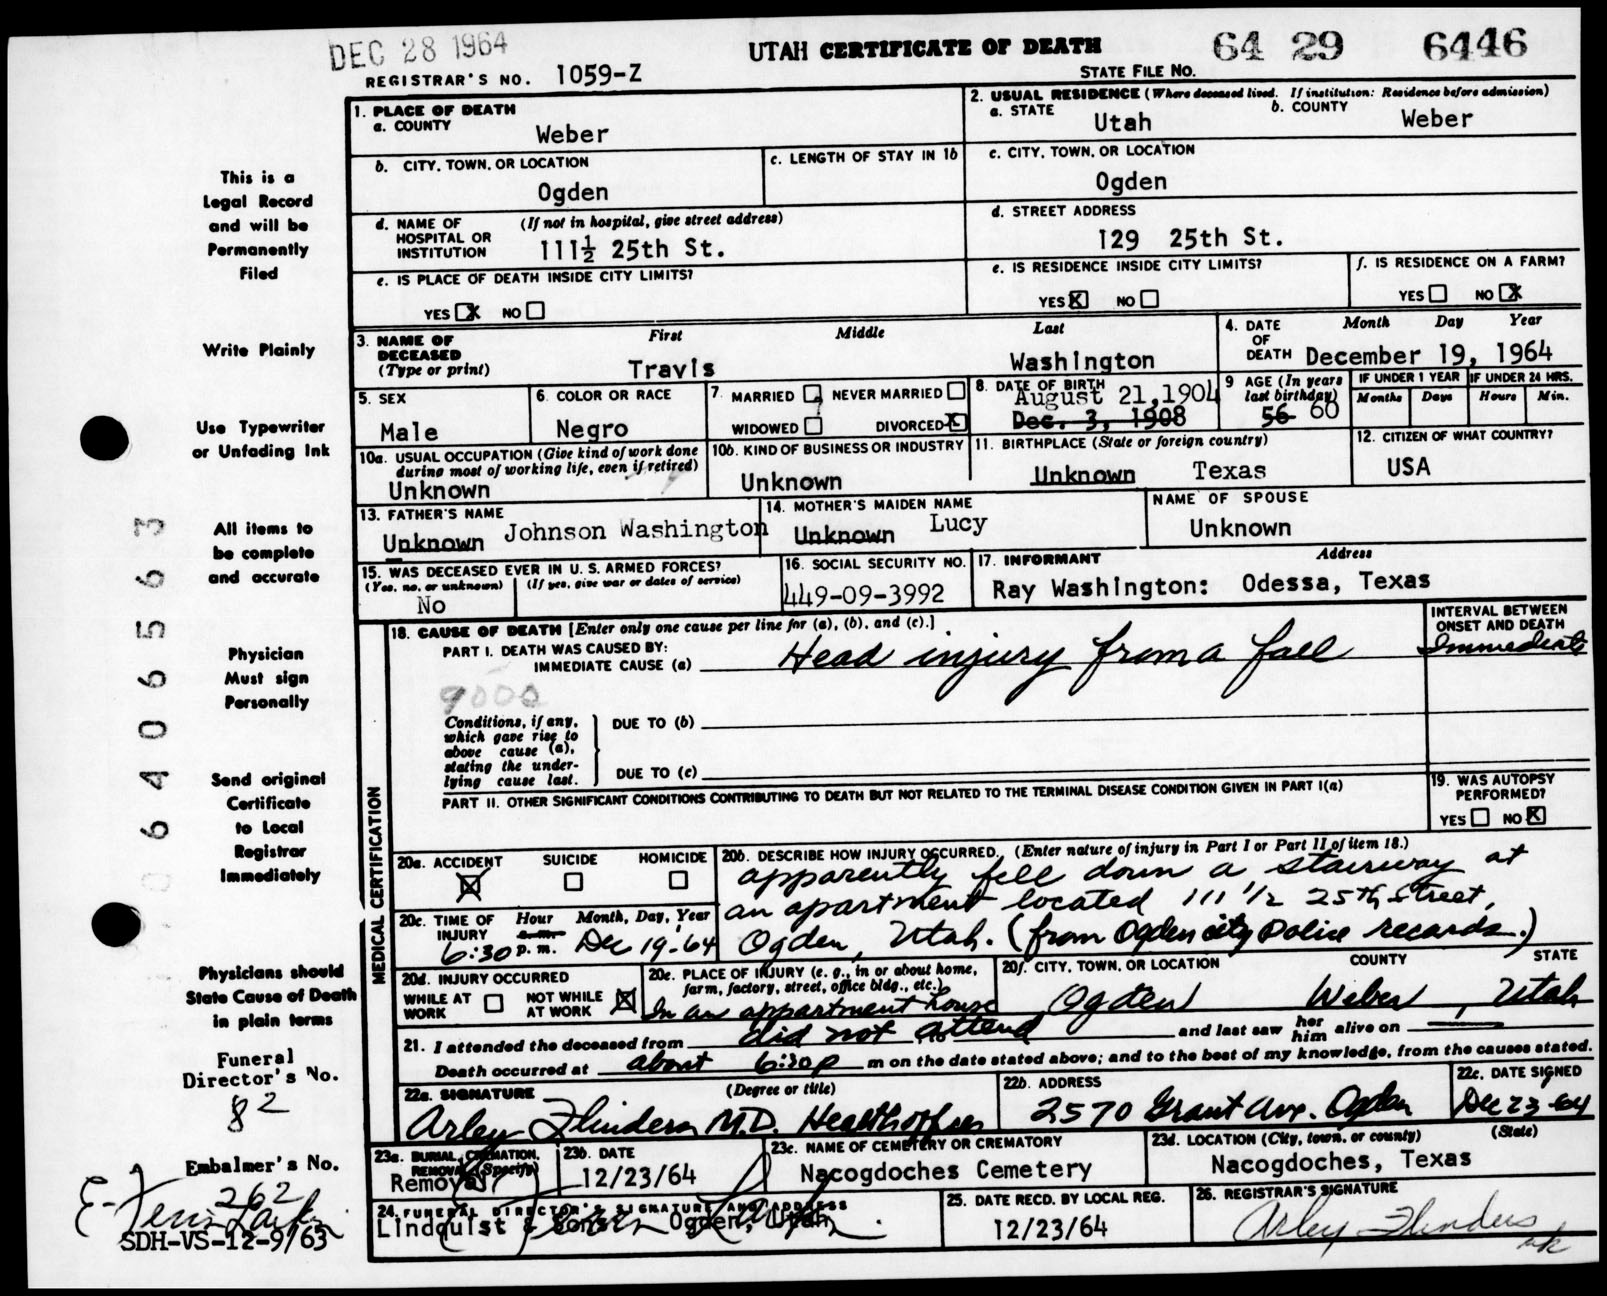 DEC 28 1964
UTAH CERTIFICATE OF DEATH
64 29 6446
REGISTRAR'S NO. 1059-Z
STATE FILE NO.
This is a
Legal Record
and will be
Permanently
Filed
Write Plainly
Use Typewriter
or Unfading Ink
All items to
be complete
and accurate
Physician
Must sign
Personally
Send original
Certificate
to Local
Registrar
Immediately
Physicians should
State Cause of Death
in plain terms
Funeral
Director's No.
82
Embalmer's No.
262
SDH-VS-12-9/63
0 6 4 0 6 5 5 6 3
1. PLACE OF DEATH
a. COUNTY
Weber
2. USUAL RESIDENCE (Where deceased lived. If institution: Residence before admission)
a. STATE
Utah
b. COUNTY
Weber
b. CITY, TOWN, OR LOCATION
Ogden
c. LENGTH OF STAY IN 1b
c. CITY, TOWN, OR LOCATION
Ogden
d. NAME OF HOSPITAL OR INSTITUTION
(If not in hospital, give street address)
111½ 25th St.
d. STREET ADDRESS
129 25th St.
e. IS PLACE OF DEATH INSIDE CITY LIMITS?
YES X NO
e. IS RESIDENCE INSIDE CITY LIMITS?
YES X NO
f. IS RESIDENCE ON A FARM?
YES NO X
3. NAME OF DECEASED
(Type or print)
First Middle Last
Travis Washington
4. DATE OF DEATH
Month Day Year
December 19, 1964
5. SEX
Male
6. COLOR OR RACE
Negro
7. MARRIED NEVER MARRIED
WIDOWED DIVORCED X
8. DATE OF BIRTH
August 21,1904
Dec. 3, 1908
9 AGE (In years last birthday)
56 60
IF UNDER 1 YEAR
Months Days
IF UNDER 24 HRS.
Hours Min.
10a. USUAL OCCUPATION (Give kind of work done
during most of working life, even if retired)
Unknown
10b. KIND OF BUSINESS OR INDUSTRY
Unknown
11. BIRTHPLACE (State or foreign country)
Unknown Texas
12. CITIZEN OF WHAT COUNTRY?
USA
13. FATHER'S NAME
Unknown Johnson Washington
14. MOTHER'S MAIDEN NAME
Unknown Lucy
NAME OF SPOUSE
Unknown
15. WAS DECEASED EVER IN U. S. ARMED FORCES?
(Yes, no, or unknown) (If yes, give war or dates of service)
No
16. SOCIAL SECURITY NO.
449-09-3992
17. INFORMANT Address
Ray Washington: Odessa, Texas
MEDICAL CERTIFICATION
18. CAUSE OF DEATH [Enter only one cause per line for (a), (b), and (c).]
INTERVAL BETWEEN
ONSET AND DEATH
PART I. DEATH WAS CAUSED BY:
IMMEDIATE CAUSE (a) Head injury from a fall
Immediate
9000
Conditions, if any,
which gave rise to
above cause (a),
stating the under-
lying cause last.
DUE TO (b)
DUE TO (c)
PART II. OTHER SIGNIFICANT CONDITIONS CONTRIBUTING TO DEATH BUT NOT RELATED TO THE TERMINAL DISEASE CONDITION GIVEN IN PART I(a)
19. WAS AUTOPSY
PERFORMED?
YES NO X
20a. ACCIDENT SUICIDE HOMICIDE
X
20b. DESCRIBE HOW INJURY OCCURRED. (Enter nature of injury in Part I or Part II of item 18.)
apparently fell down a stairway at
an apartment located 111 1/2 25th Street,
Ogden, Utah. (from Ogden city Police records.)
20c. TIME OF INJURY
Hour Month, Day, Year
a.m.
6:30 p.m. Dec 19-64
20d. INJURY OCCURRED
WHILE AT WORK NOT WHILE AT WORK X
20e. PLACE OF INJURY (e. g., in or about home,
farm, factory, street, office bldg., etc.)
In an appartment house
20f. CITY, TOWN, OR LOCATION COUNTY STATE
Ogden Weber, Utah
21. I attended the deceased from did not attend and last saw her him alive on
Death occurred at about 6:30 p m on the date stated above; and to the best of my knowledge, from the causes stated.
22a. SIGNATURE (Degree or title)
Arley Flinders M.D. Health officer
22b. ADDRESS
2570 Grant Ave. Ogden
22c. DATE SIGNED
Dec 23-64
23a. BURIAL, CREMATION,
REMOVAL (Specify)
Removal
23b. DATE
12/23/64
23c. NAME OF CEMETERY OR CREMATORY
Nacogdoches Cemetery
23d. LOCATION (City, town, or county) (State)
Nacogdoches, Texas
24. FUNERAL DIRECTOR'S SIGNATURE AND ADDRESS
Lindquist & Sons Ogden, Utah
25. DATE RECD. BY LOCAL REG.
12/23/64
26. REGISTRAR'S SIGNATURE
Arley Flinders